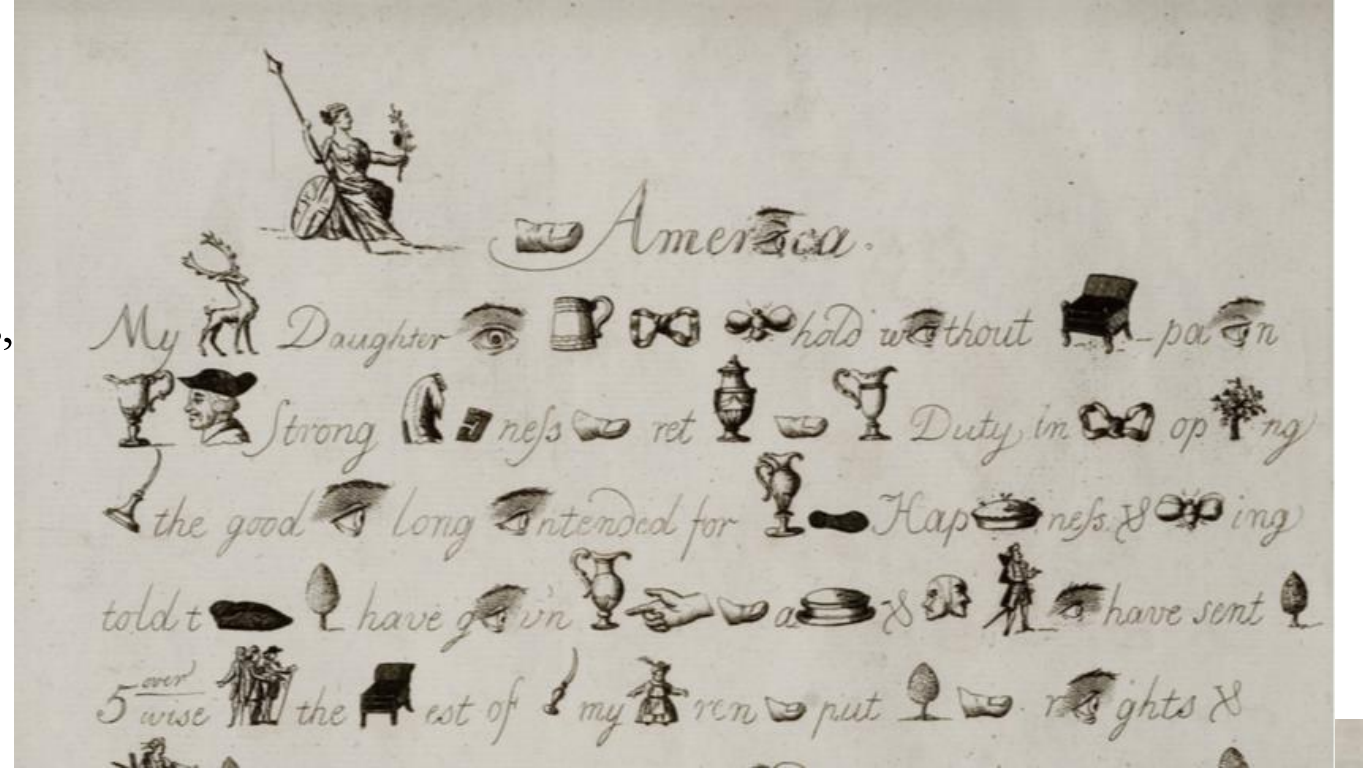 ,
America.
My Daughter hold without pain
Strong ness ret Duty in op ng
the good long intended for Hap ness & ing
told t have g v'n a & have sent
5 over wise the est of my ren put rights &